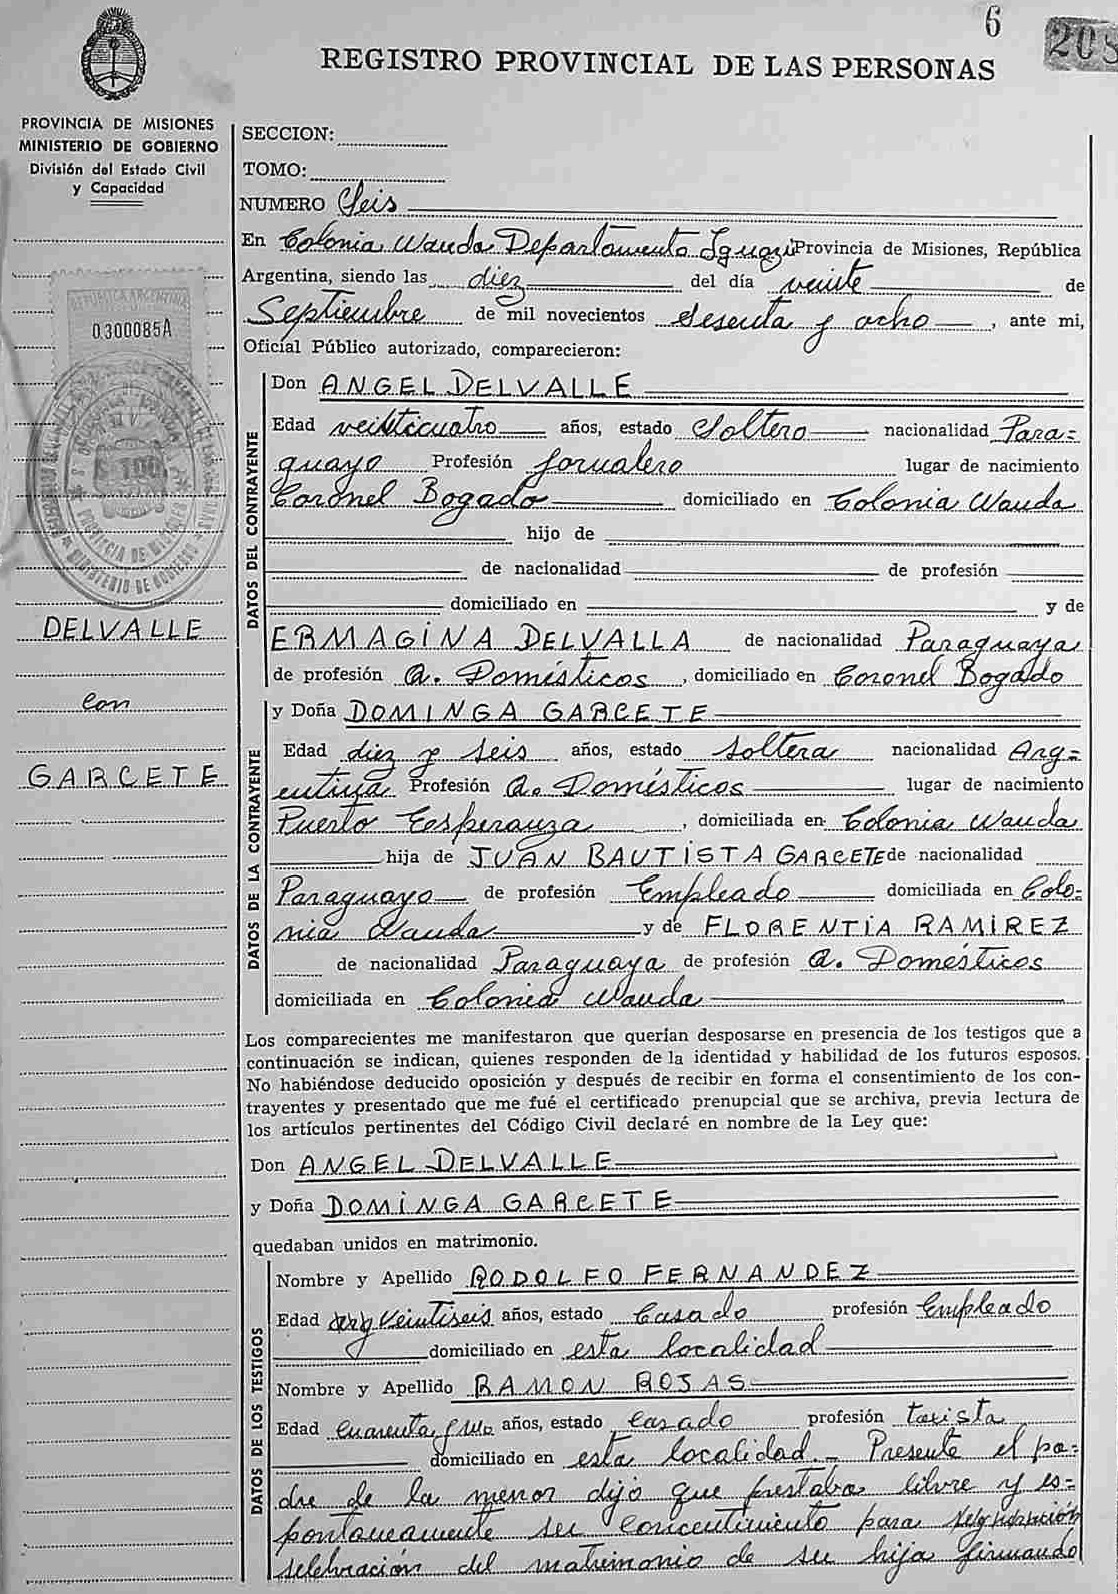 6
208
REGISTRO PROVINCIAL DE LAS PERSONAS
PROVINCIA DE MISIONES
MINISTERIO DE GOBIERNO
División del Estado Civil
y Capacidad
REPUBLICA ARGENTINA
0.300085A
$ 100
PROVINCIA DE MISIONES
MINISTERIO DE GOBIERNO
DELVALLE
con
GARCETE
SECCION:
TOMO:
NUMERO Seis
En Colonia Wanda Departamento Iguazú Provincia de Misiones, República
Argentina, siendo las diez del día veinte de
Septiembre de mil novecientos sesenta y ocho, ante mi,
Oficial Público autorizado, comparecieron:
DATOS DEL CONTRAYENTE
Don ANGEL DELVALLE
Edad veinticuatro años, estado Soltero nacionalidad Para=
guayo Profesión Jornalero lugar de nacimiento
Coronel Bogado domiciliado en Colonia Wanda
hijo de
de nacionalidad de profesión
domiciliado en y de
ERMAGINA DELVALLA de nacionalidad Paraguaya
de profesión Q. Domésticos, domiciliado en Coronel Bogado
DATOS DE LA CONTRAYENTE
y Doña DOMINGA GARCETE
Edad diez y seis años, estado soltera nacionalidad Arg=
entina Profesión Q. Domésticos lugar de nacimiento
Puerto Esperanza, domiciliada en Colonia Wanda
hija de JUAN BAUTISTA GARCETE de nacionalidad
Paraguayo de profesión Empleado domiciliada en Colo=
nia Wanda y de FLORENTIA RAMIREZ
de nacionalidad Paraguaya de profesión Q. Domésticos
domiciliada en Colonia Wanda
Los comparecientes me manifestaron que querían desposarse en presencia de los testigos que a
continuación se indican, quienes responden de la identidad y habilidad de los futuros esposos.
No habiéndose deducido oposición y después de recibir en forma el consentimiento de los con-
trayentes y presentado que me fué el certificado prenupcial que se archiva, previa lectura de
los artículos pertinentes del Código Civil declaré en nombre de la Ley que:
Don ANGEL DELVALLE
y Doña DOMINGA GARCETE
quedaban unidos en matrimonio.
DATOS DE LOS TESTIGOS
Nombre y Apellido RODOLFO FERNANDEZ
Edad veintiseis años, estado Casado profesión Empleado
domiciliado en esta localidad
Nombre y Apellido RAMON ROJAS
Edad cuarenta y uno años, estado casado profesión taxista
domiciliado en esta localidad.- Presente el pa=
dre de la menor dijo que prestaba libre y es=
pontaneamente su concentimiento para
selebración del matrimonio de su hija firmando